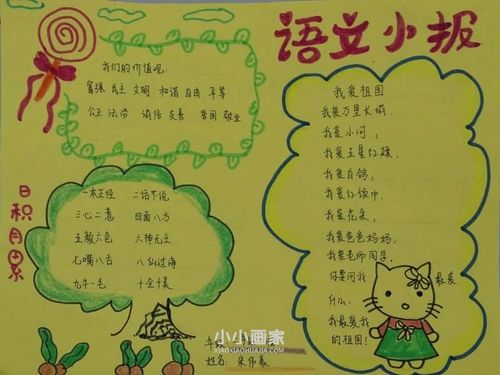 语文小报
我们的价值观:
富强 民主 文明 和谐 自由 平等
公正 法治 诚信 友善 爱国 敬业
日积月累
一本正经 二话不说
三心二意 四面八方
五颜六色 六神无主
七嘴八舌 八仙过海
九牛一毛 十全十美
我爱祖国
我爱万里长城,
我爱小河,
我爱五星红旗,
我爱白鸽,
我爱红领巾,
我爱花朵,
我爱爸爸妈妈,
我爱老师同学。
你要问我最爱
什么,
我最爱我
的祖国!
小小画家
XIAOXIAOHUAJIA.COM
姓名: